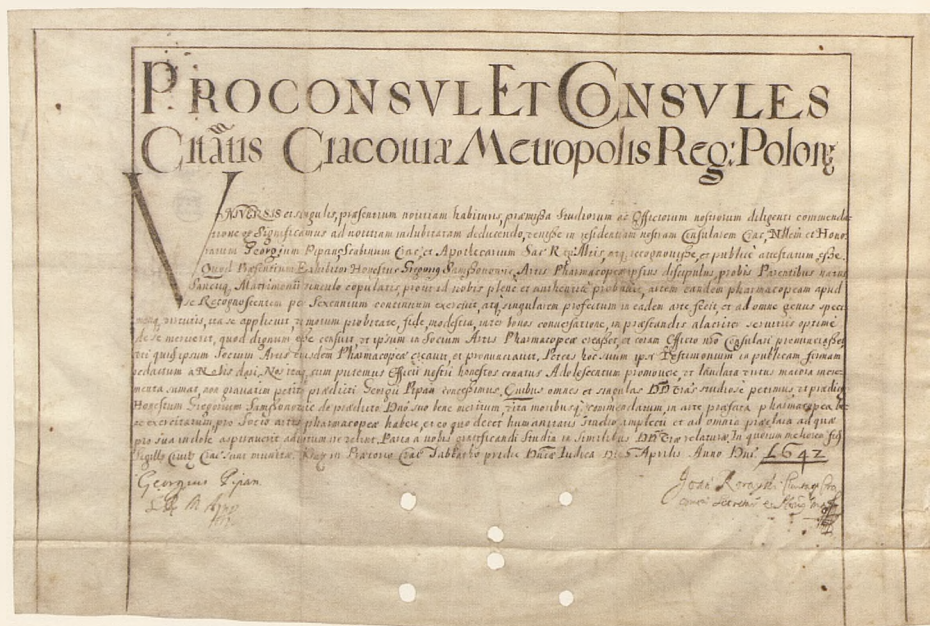 PROCONSVL ET CONSVLES
Citatis Cracouiæ Metropolis Reg: Polon:
VNIVERSIS et singulis, præsentium notitiam habituris, præmissa Studiorum ac Officiorum nostrorum diligenti commenda
tione Significamus ad notitiam indubitatam deducendo, venisse in residentiam nostram Consularem Crac, Nllem et Hono
ratum Georgium Pipan Scabinum Crac, et Apothecarium Sac Reg Mtis, atq recognouisse, et publicè attestatum esse.
Quod Præsentium Exhibitor Honestus Gregorius Samsonowic, Artis Pharmacopeæ ipsius discipulus, probis Parentibus natus
Sanctiq Matrimonii vinculo copulatis, prout id nobis plene et authenticè probauit, artem eandem pharmacopeam apud
se Recognoscentem per Sexennium continuum exercuit, atq singularem profectum in eadem arte fecit, et ad omne genus speci
virtutis, ita se applicuit, vt morum probitate, fide, modestia, inter bonos conuersatione, in præstandis alacriter seruitiis optimè
de se meruerit, quod dignum esse censuit, vt ipsum in Socium Artis Pharmacopeæ crearet, et coram Officio nro Consulari pronunciasset
vti quidem ipsum Socium Artis eiusdem Pharmacopeæ creauit, et pronunciauit, Petens hocsuum ipsi Testimonium in publicam formam
redactum à Nobis dari. Nos itaq cum putemus Officii nostri honestos conatus Adolescentum promouere, et laudata virtus maiora incre
menta sumat, non grauatim petiti prædicti Georgii Pipan concessimus. Quibus omnes et singulas DD Vras studiosè petimus vt prædictu
Honestum Gregorium Samsonowic de prædicto Dno suo bene meritum, vita moribusq commendatum in arte præfata pharmacopea be
ne exercitatum, pro Socio artis pharmacopeæ habere, et eo quo decet humanitatis studio amplecti et ad omnia præclara ad quæ
pro sua indole aspirauerit aditum ne velint. Paria à nobis gratificandi Studia in Similibus DD Vræ relaturæ. In quorum
Sigillo Ciuit Crac sunt munitæ. in Prætorio Crac Sabbatho pridie Dnicæ Iudica Die 5 Aprilis Anno Dni 1642
Georgius Pipan